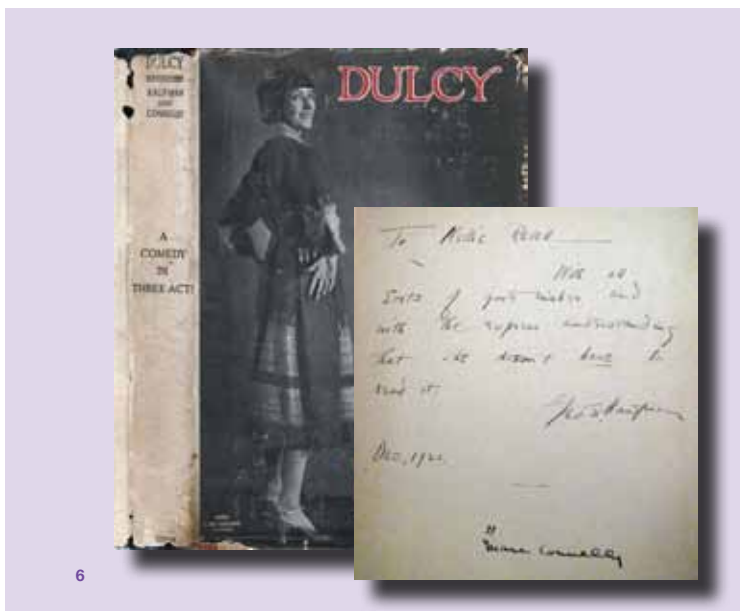 DULCY
KAUFMAN
AND
CONNELLY
A
COMEDY
IN
THREE ACTS
DULCY
To
With all
Sorts of good wishes and
with the express understanding
that she doesn't have to
read it.
Geo S. Kaufman
Dec, 192
"
Marc Connelly
6